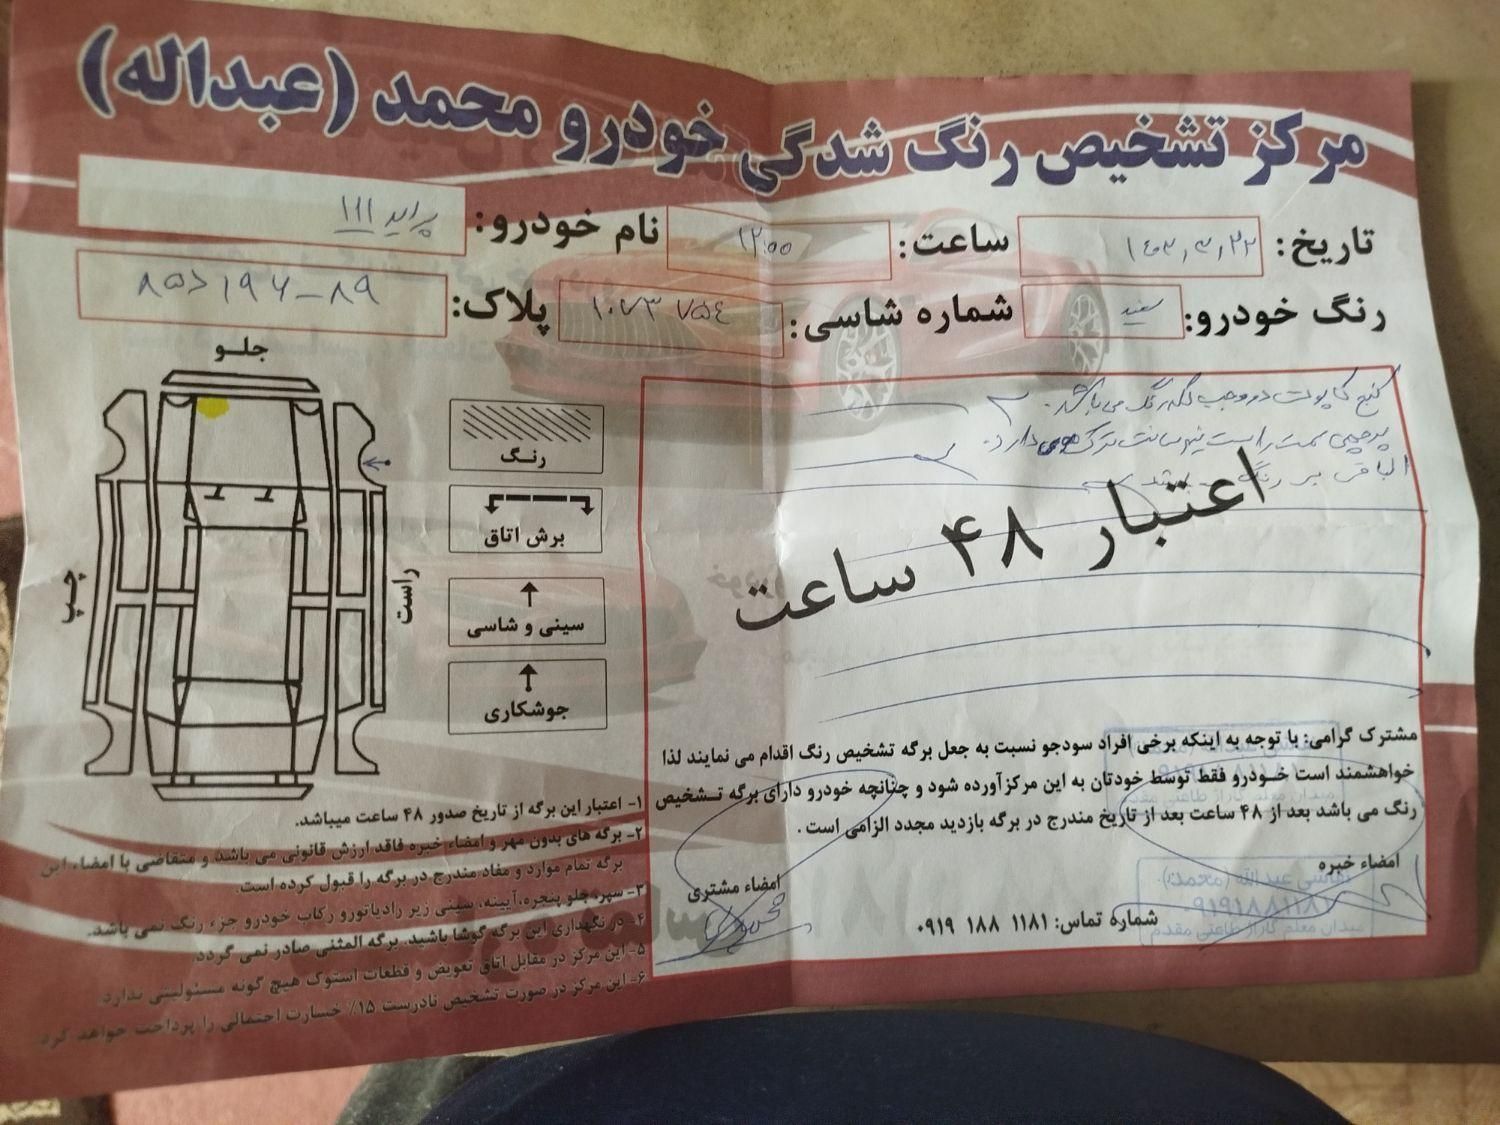 مرکز تشخیص رنگ شدگی خودرو محمد (عبداله)
تاریخ: ۱۴۰۳,۳,۲۲ ساعت: ۱۲:۰۰ نام خودرو: پراید ۱۱۱
رنگ خودرو: سفید شماره شاسی: ۱۰۷۳۷۵۴ پلاک: ۸۵د۱۹۶-۸۹
جلـو
چپ
راست
رنـگ
برش اتاق
سینی و شاسی
جوشکاری
کنج کاپوت دو وجب لکه رنگ می باشد.
پرچمی سمت راست نیم سانت ترک دارد.
الباقی بی رنگ
اعتبار ۴۸ ساعت
مشترک گرامی: با توجه به اینکه برخی افراد سودجو نسبت به جعل برگه تشخیص رنگ اقدام می نمایند لذا
خواهشمند است خـودرو فقط توسط خودتان به این مرکزآورده شود و چنانچه خودرو دارای برگه تـشخیص
رنگ می باشد بعد از ۴۸ ساعت بعد از تاریخ مندرج در برگه بازدید مجدد الزامی است .
امضاء خبره
امضاء مشتری
شماره تماس: ۱۱۸۱ ۱۸۸ ۰۹۱۹
نقاشی عبدالله (محمد)
۰۹۱۹۱۸۸۱۱۸۱
میدان معلم گاراژ طاعتی مقدم
۱- اعتبار این برگه از تاریخ صدور ۴۸ ساعت میباشد.
۲- برگه های بدون مهر و امضاء خبره فاقد ارزش قانونی می باشد و متقاضی با امضاء این
برگه تمام موارد و مفاد مندرج در برگه را قبول کرده است.
۳- سپر، جلو پنجره، آیینه، سینی زیر رادیاتورو رکاب خودرو جزء رنگ نمی باشد.
۴- در نگهداری این برگه کوشا باشید. برگه المثنی صادر نمی گردد.
۵- این مرکز در مقابل اتاق تعویض و قطعات استوک هیچ گونه مسئولیتی ندارد.
۶- این مرکز در صورت تشخیص نادرست ۱۵٪ خسارت احتمالی را پرداخت خواهد کرد.